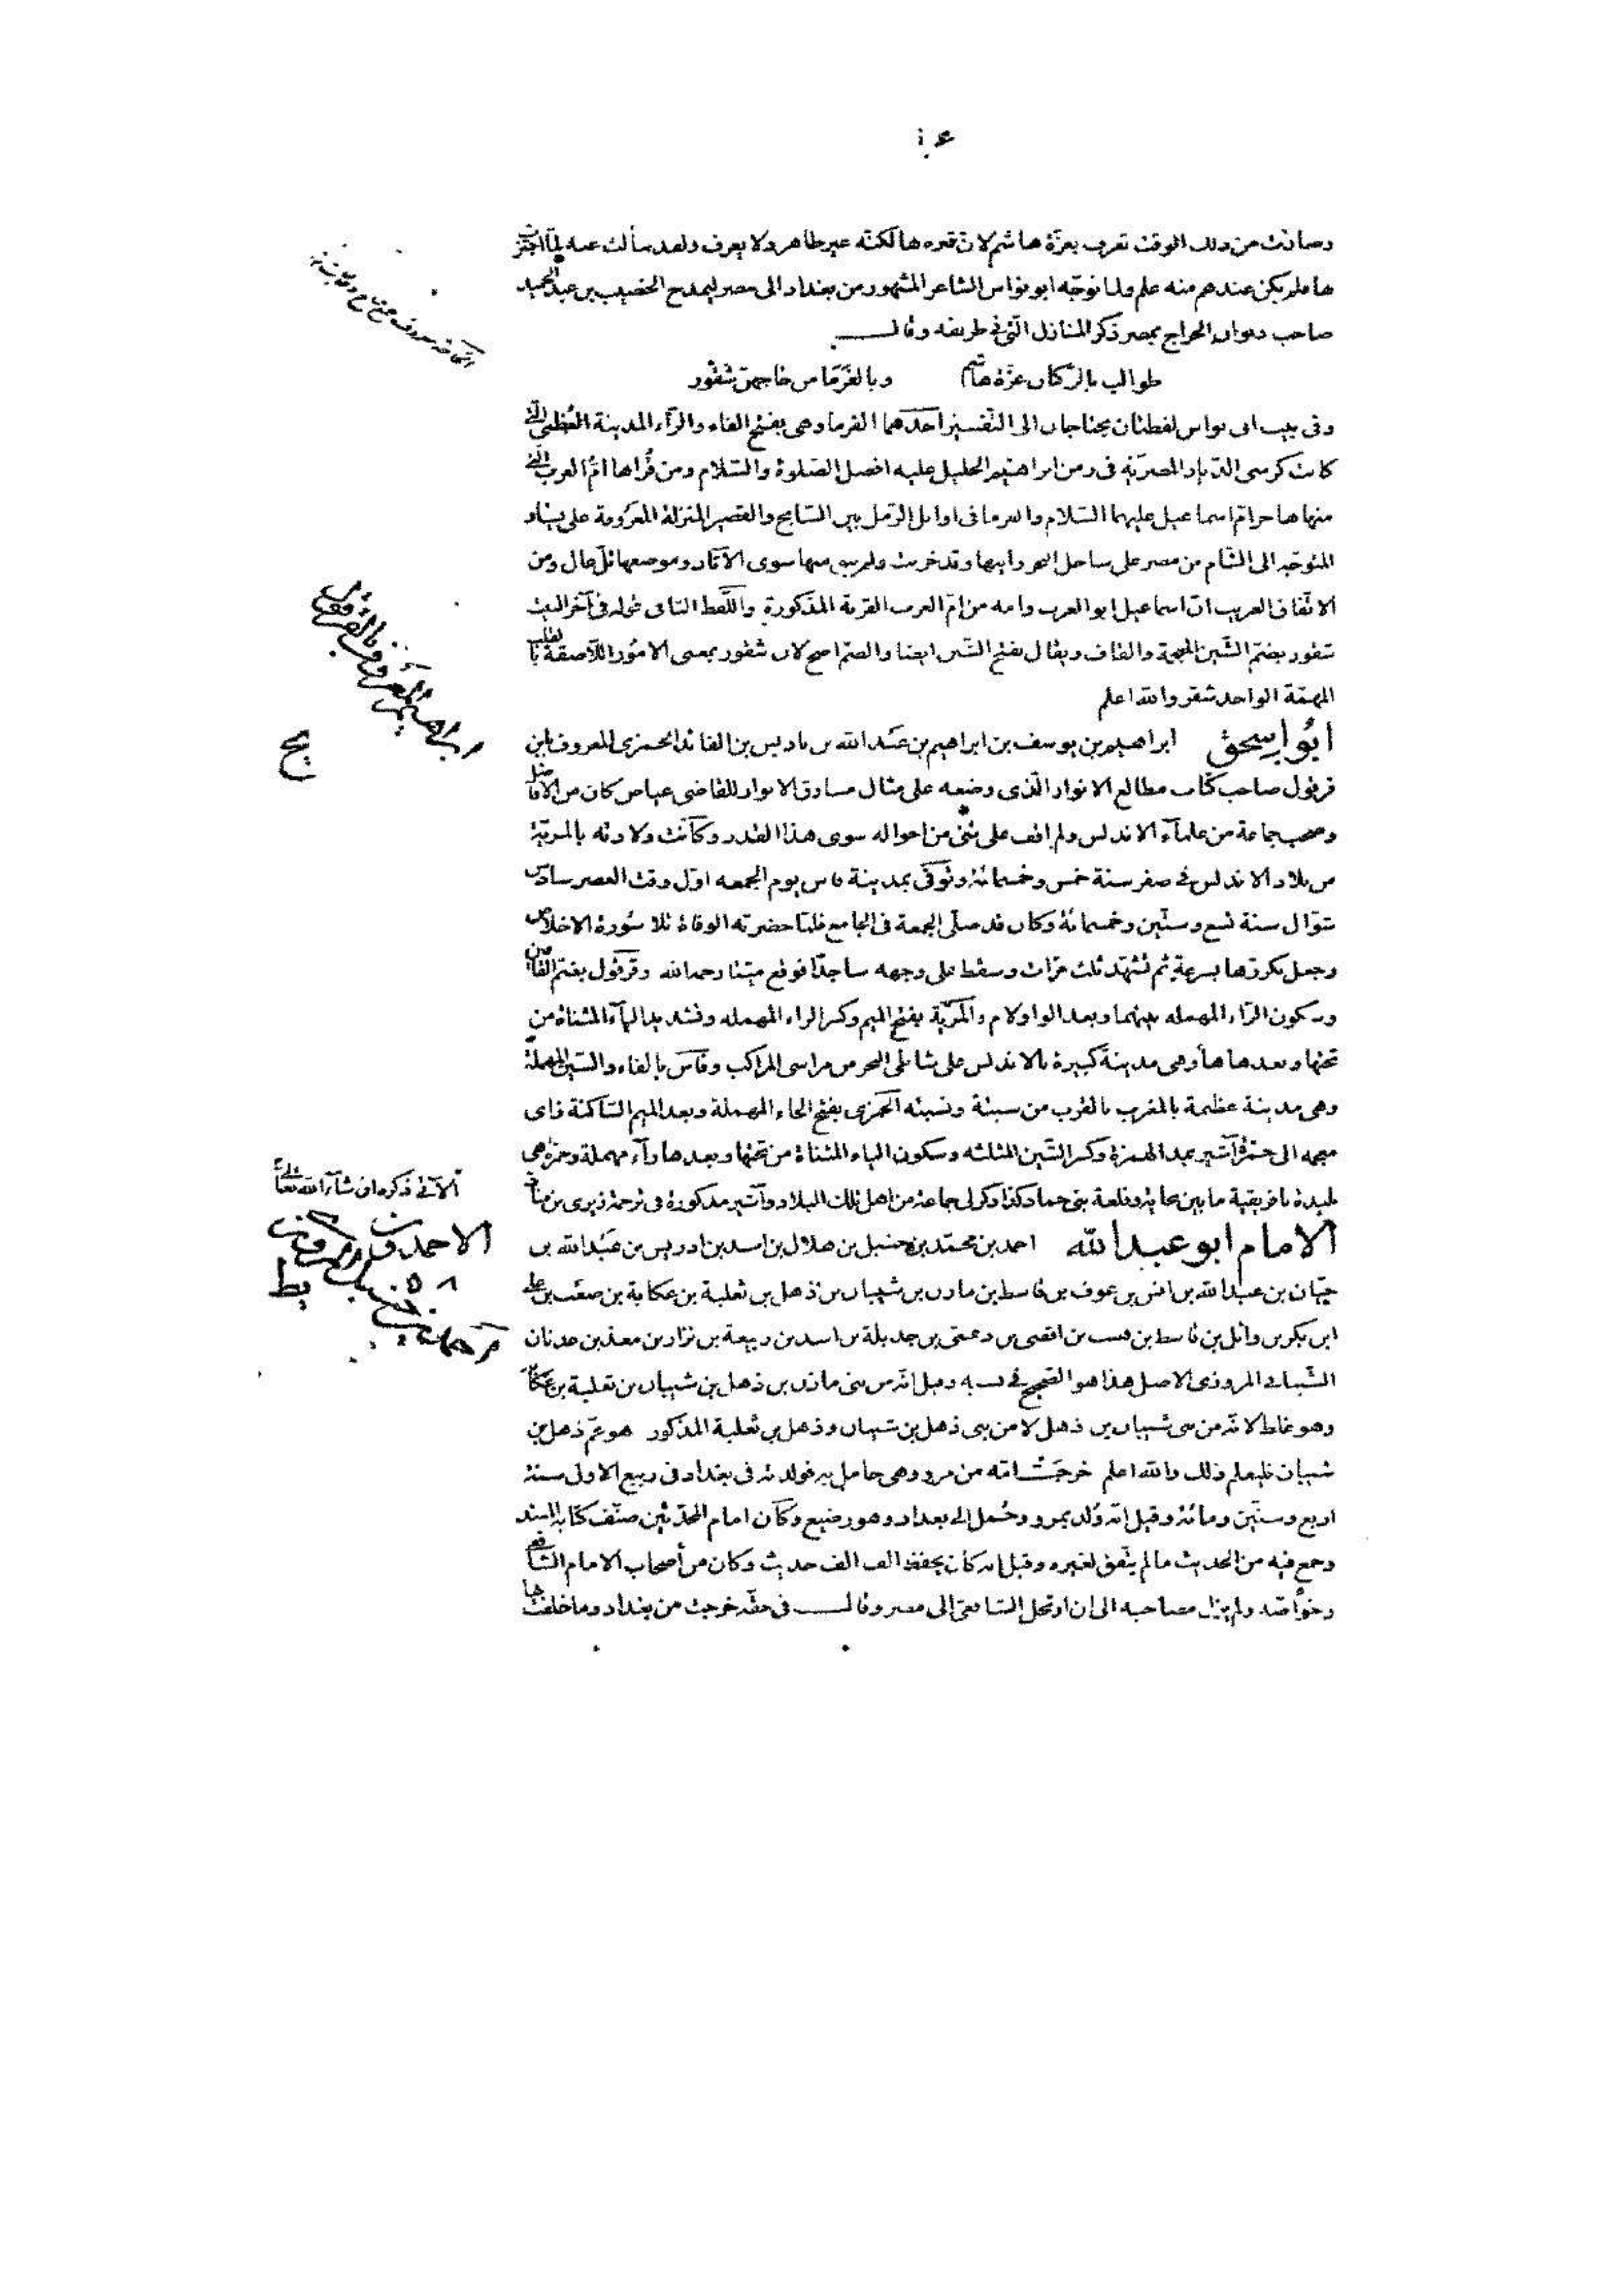 وصارت من ذلك الوقت تعرف بغزة هاشم لان قبره بها لكنه غير ظاهر ولا يعرف ولقد سألت عنه لما اجتزت
بها فلم يكن عندهم منه علم ولما توجّه ابو نواس الشاعر المشهور من بغداد الى مصر ليمدح الخصيب بن عبد الحميد
صاحب ديوان الخراج بمصر ذكر المنازل التى فى طريقه وقال
طوالب بالركبان غزّة هاشم وبالفَرَمَا من حاجهنّ شقور
وفى بيت ابى نواس لفظتان يحتاجان الى التّفسير احدهما الفرما وهى بفتح الفاء والرّاء المدينة العُظمى التى
كانت كرسى الدّيار المصريّة فى زمن ابراهيم الخليل عليه افضل الصّلوة والسّلام ومن قُراها امّ العرب التى
منها هاجر امّ اسماعيل عليهما السّلام والفرما فى اوائل الرّمل بين السّايح والقصير المنزلة المعروفة على يسار
المتوجّه الى الشّام من مصر على ساحل البحر رأيتها وقد خربت ولم يبق منها سوى الآثار وموضعها تلّ عال ومن
الاتّفاق الغريب انّ اسماعيل ابو العرب وامه من امّ العرب القرية المذكورة واللّفظ الثانى قوله فى آخر البيت
شقور بضمّ الشّين المعجمة والقاف ويقال بفتح الشّين ايضا والضمّ اصح لان شقور بمعنى الامُور اللّاصقة بالقلب
المهمّة الواحد شقر والله اعلم
ابُو اسحق ابراهيم بن يوسف بن ابراهيم بن عبَد الله بن باديس بن القائد الحمزى المعروف بابن
قرقول صاحب كتاب مطالع الانوار الّذى وضعه على مثال مشارق الانوار للقاضى عياض كان من الافاضل
وصحب جماعة من علمآء الاندلس ولم اقف على شئ من احواله سوى هذا القدر وكانت ولادته بالمريّة
من بلاد الاندلس فى صفر سنة خمس وخمسمائة وتوفّى بمدينة فاس يوم الجمعه اوّل وقت العصر سادس
شوّال سنة تسع وستّين وخمسمائة وكان قد صلّى الجمعة فى الجامع فلمّا حضرته الوفاة تلا سُورة الاخلاص
وجعل يكررّها بسرعةٍ ثم تشهّد ثلث مرّات وسقط على وجهه ساجدًا فوقع ميّتا رحمه الله وقرقول بضمّ القافين
وسكون الرّاء المهمله بينهما وبعد الواو لام والمَريّة بفتح الميم وكسر الراء المهمله وتشديد اليآء المثناة من
تحتها وبعدها هأ وهى مدينة كبيرة بالاندلس على شاطى البحر من مراسى المراكب وفاس بالفاء والسّين المهملة
وهى مدينة عظيمة بالمغرب بالقرب من سبتة ونسبته الحَمزى بفتح الحاء المهملة وبعد الميم السّاكنة زاى
معجمه الى حمزة آشير بمد الهمزة وكسر الشّين المثلثه وسكون الياء المثناة من تحتها وبعدها رآء مهملة وحمزة هى
بليدة بافريقية ما بين بجاية وقلعة بنى حماد كذا ذكر لى جماعة من اهل تلك البلاد وآشير مذكورة فى ترجمة زيرى بن مناد
الآتى ذكره ان شآء الله تعالى
الامام ابو عبد الله احمد بن محمّد بن حنبل بن هلال بن اسد بن ادريس بن عبَد الله بن
حيّان بن عبد الله بن انس بن عوف بن قاسط بن مازن بن شيبان بن ذهل بن ثعلبة بن عكابة بن صعَب بن على
ابن بكر بن وائل بن قاسط بن هنب بن افصى بن دعمى بن جديلة بن اسد بن ربيعة بن نزار بن معد بن عدنان
الشّيبانى المروزى الاصل هذا هو الصّحيح فى نسبه وقيل انّه من بنى مازن بن ذهل بن شيبان بن ثعلبة بن عكابة
وهو غلط لانّه من بنى شيبان بن ذهل لا من بنى ذهل بن شيبان وذهل بن ثعلبة المذكور هو عمّ ذهل بن
شيبان فليعلم ذلك والله اعلم خرجَتْ امّه من مرو وهى حامل به فولدته فى بغداد فى ربيع الاول سنة
اربع وستّين ومائة وقيل انّه وُلد بمرو وحُمل الى بغداد وهو رضيع وكان امام المحدّثين صنّف كتابه المسند
وجمع فيه من الحديث ما لم يتّفق لغيره وقيل انه كان يحفظ الف الف حديث وكان من أصحاب الامام الشّافعى
وخواصّه ولم يزل مصاحبه الى ان ارتحل الشافعى الى مصر وقال فى حقّه خرجت من بغداد وما خلفت بها